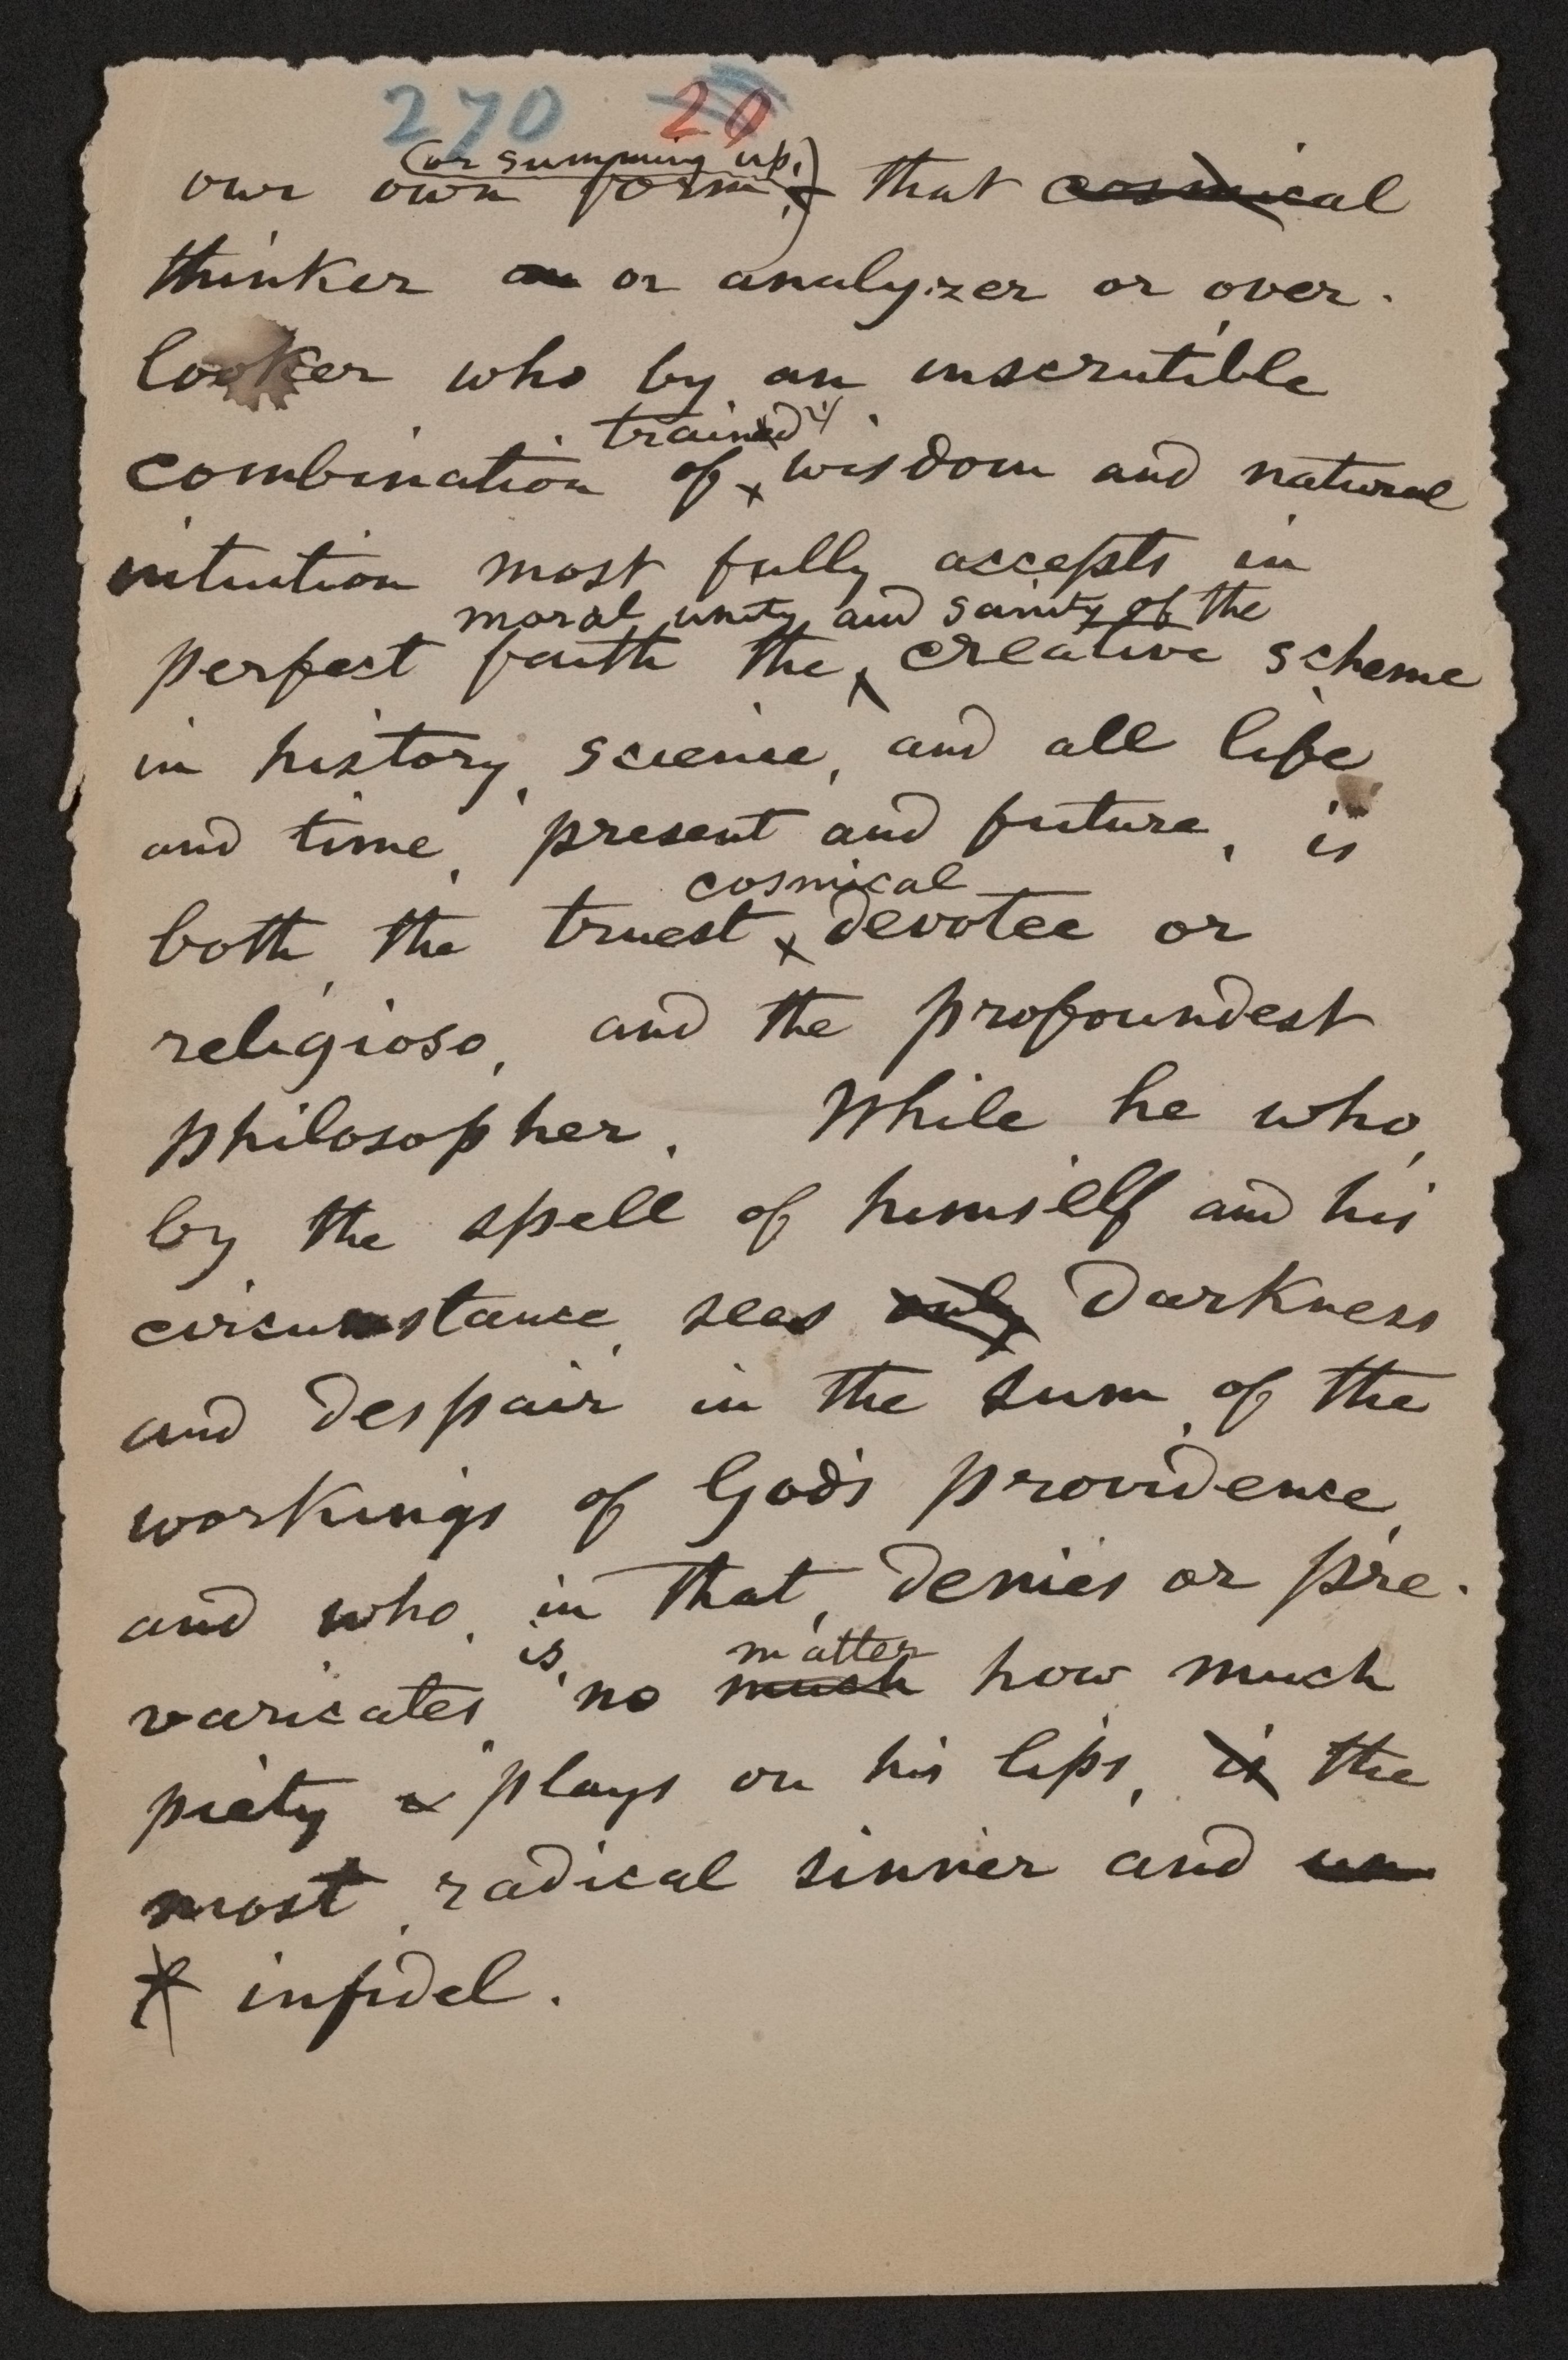 270 20
(or summing up,)
our own form, that cosmical
thinker or analyzer or over-
looker who by an inscrutible
trained
combination of wisdom and natural
intuition most fully accepts in
moral unity and sanity of the
perfect faith the creative scheme
in history, science, and all life
and time, present and future, is
cosmical
both the truest devotee or
religioso, and the profoundest
philosopher. While he who,
by the spell of himself and his
circumstance, sees only darkness
and despair in the sum of the
workings of God's providence,
and who, in that, denies or pre-
is,
matter
varicates, no much how much
piety plays on his lips, is the
most radical sinner and un
infidel.